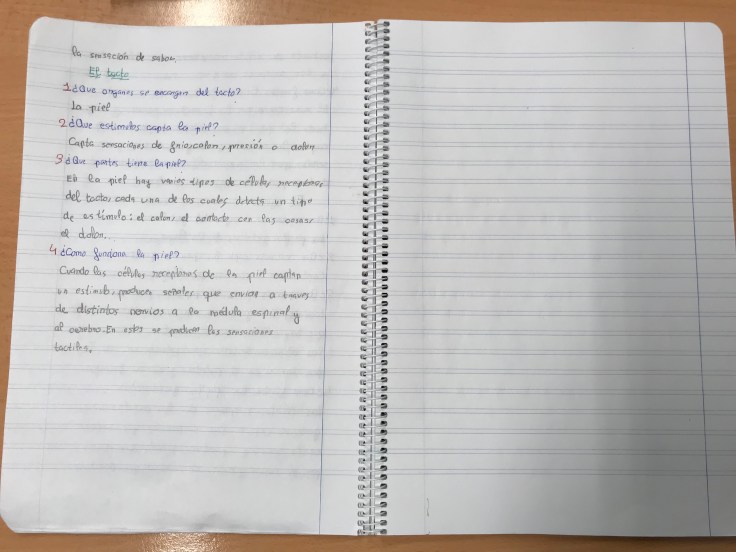 la sensación de sabor.
El tacto
1 ¿Que organos se encargan del tacto?
La piel
2 ¿Que estimulos capta la piel?
Capta sensaciones de frio, calor, presión o dolor
3 ¿Que partes tiene la piel?
En la piel hay varios tipos de células receptoras
del tacto, cada una de las cuales detecta un tipo
de estímulo: el calor, el contacto con las cosas,
el dolor.
4 ¿Como funciona la piel?
Cuando las células receptoras de la piel captan
un estimulo, producen señales que envian a traves
de distintos nervios a la médula espinal y
al cerebro. En estos se producen las sensaciones
tactiles.